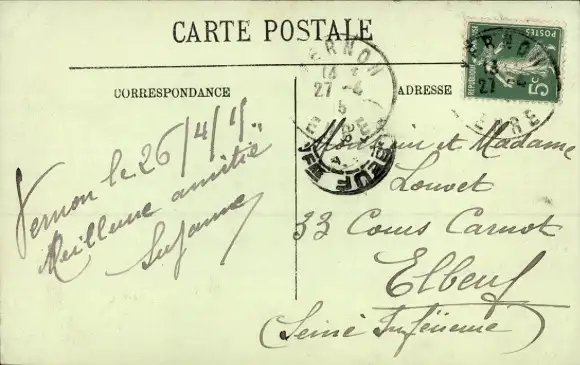 CARTE POSTALE
CORRESPONDANCE
ADRESSE
Vernon le 26/4/15
Meilleure amitié
Suzanne
Monsieur et Madame
Louvet
33 Cours Carnot
Elbeuf
(Seine Inférieure)
VERNON
13
27 -4
EURE
ERNON
14
27 -4
5
ELBEUF
POSTES
5c